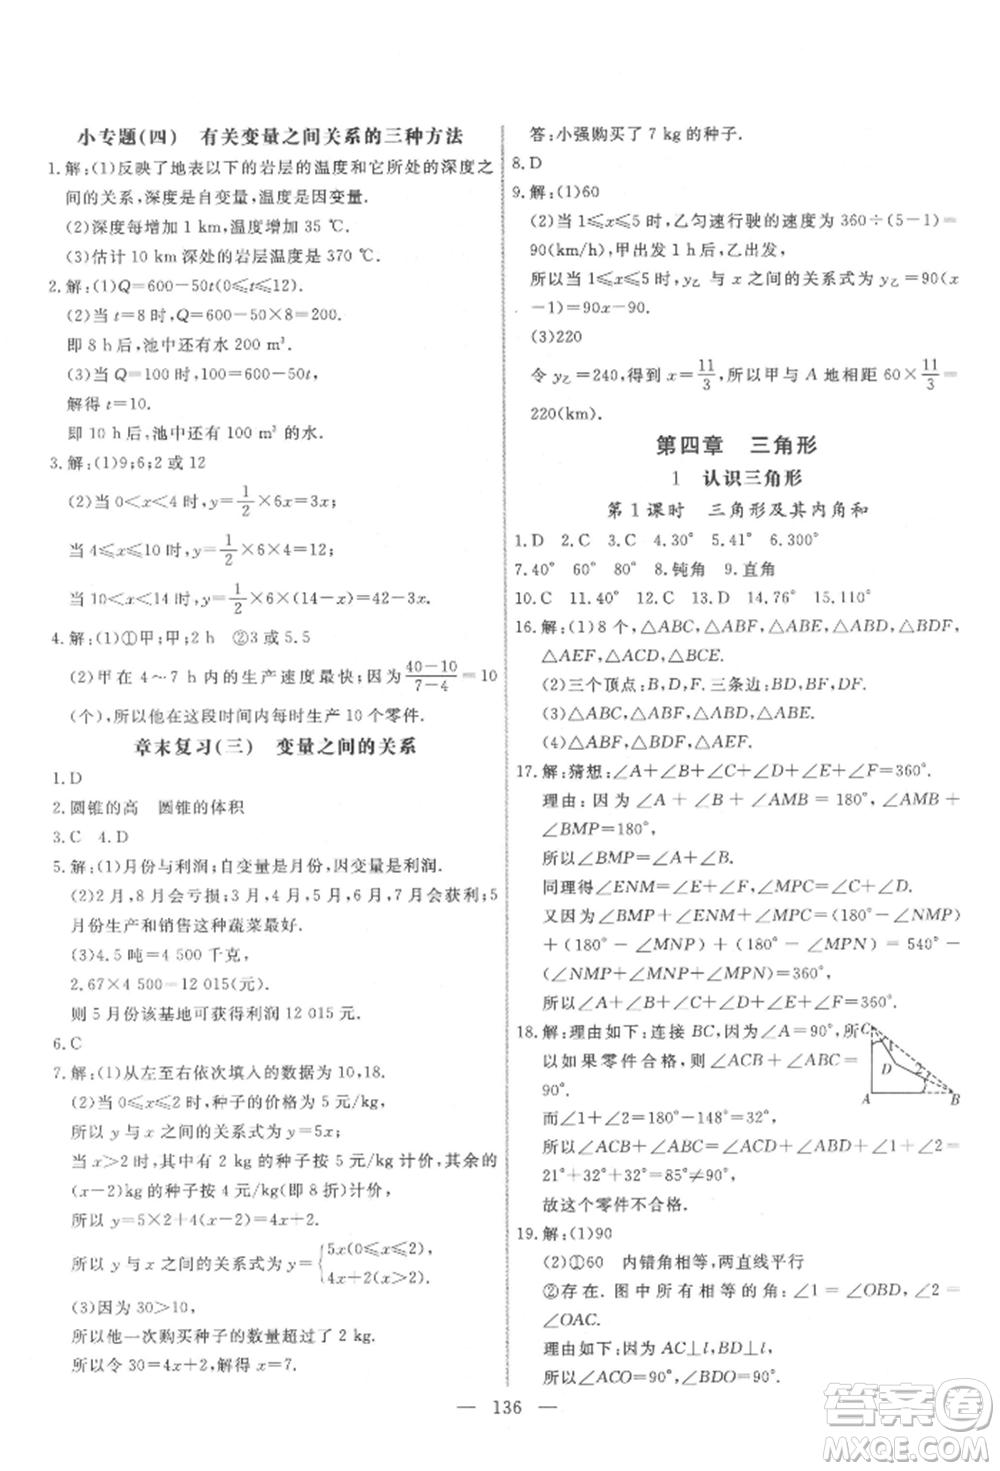 小专题(四)　有关变量之间关系的三种方法
1.解:(1)反映了地表以下的岩层的温度和它所处的深度之
间的关系,深度是自变量,温度是因变量.
(2)深度每增加 1 km,温度增加 35 ℃.
(3)估计 10 km 深处的岩层温度是 370 ℃.
2.解:(1)Q=600-50t(0≤t≤12).
(2)当 t=8时,Q=600-50×8=200.
即 8 h后,池中还有水 200 m³.
(3)当 Q=100 时,100=600-50t,
解得 t=10.
即 10 h后,池中还有 100 m³ 的水.
3.解:(1)9;6;2 或 12
(2)当 0<x<4 时,y=1/2×6x=3x;
当 4≤x≤10 时,y=1/2×6×4=12;
当 10<x<14 时,y=1/2×6×(14-x)=42-3x.
4.解:(1)①甲;甲;2 h　②3或 5.5
(2)甲在 4～7 h 内的生产速度最快;(40-10)/(7-4)=10
(个),所以他在这段时间内每时生产 10 个零件.
章末复习(三)　变量之间的关系
1.D
2.圆锥的高　圆锥的体积
3.C　4.D
5.解:(1)月份与利润;自变量是月份,因变量是利润.
(2)2月,8月会亏损;3月,4月,5月,7月会获利;5
月份生产和销售这种蔬菜最好.
(3)4.5 吨=4 500 千克,
2.67×4 500=12 015(元).
则 5 月份该基地可获利润 12 015 元.
6.C
7.解:(1)从左至右依次填入的数据为10,18.
(2)当 0≤x≤2 时,种子的价格为 5 元/kg,
所以 y 与 x 之间的关系式为 y=5x;
当 x>2 时,其中有 2 kg 的种子按 5 元/kg计价,其余的
(x-2)kg 的种子按 4 元/kg(即8折)计价,
所以 y=5×2+4(x-2)=4x+2.
所以 y 与 x 之间的关系式为 y={5x(0≤x≤2),
4x+2(x>2).
(3)因为 30>10,
所以他一次购买种子的数量超过了 2 kg.
所以令 30=4x+2,解得 x=7.
答:小强购买了 7 kg 的种子.
8.D
9.解:(1)60
(2)当 1≤x≤5 时,乙匀速行驶的速度为 360÷(5-1)=
90(km/h),甲出发 1 时后,乙出发,
所以当 1≤x≤5 时,y乙 与 x 之间的关系式为 y乙=90(x
-1)=90x-90.
(3)220
令 y乙=240,得到 x=11/3,所以甲与 A 地相距 60×11/3=
220(km).
第四章　三角形
1　认识三角形
第1课时　三角形及其内角和
1.D　2.C　3.C　4.30°　5.41°　6.300°
7.40°　60°　80°　8.钝角　9.直角
10.C　11.40°　12.C　13.D　14.76°　15.110°
16.解:(1)8个,△ABC,△ABF,△ABE,△ABD,△BDF,
△AEF,△AED,△BCE.
(2)三个顶点:B,D,F,三条边:BD,BF,DF.
(3)△ABC,△ABF,△ABE.
(4)△ABF,△BDF,△AEF.
17.解:猜想:∠A+∠B+∠C+∠D+∠E+∠F=360°.
理由:因为∠A+∠B+∠AMB=180°,∠AMB+
∠BMP=180°,
所以∠BMP=∠A+∠B.
同理可得∠ENM=∠E+∠F,∠MPC=∠C+∠D.
又因为∠BMP+∠ENM+∠MPC=(180°-
∠NMP)+(180°-∠MNP)+(180°-∠MPN)=540°-
(∠NMP+∠MNP+∠MPN)=360°,
所以∠A+∠B+∠C+∠D+∠E+∠F=360°.
18.解:理由如下:连接 BC,因为∠A=90°,所
以如果零件合格,则∠ACB+∠ABC=
90°.
而∠1+∠2=180°-148°=32°,
所以∠ACB+∠ABC=∠ACD+∠ABD+∠1+∠2=
21°+32°+32°=85°≠90°.
故这个零件不合格.
C
1
D
2
A
B
19.解:(1)90
(2)①60　内错角相等,两直线平行
②存在.图中所有相等的角:∠1=∠OBD,∠2=
∠OAC.
理由如下:因为AC⊥l,BD⊥l,
所以∠ACO=90°,∠BDO=90°.
136
答案圈
MXQE.COM